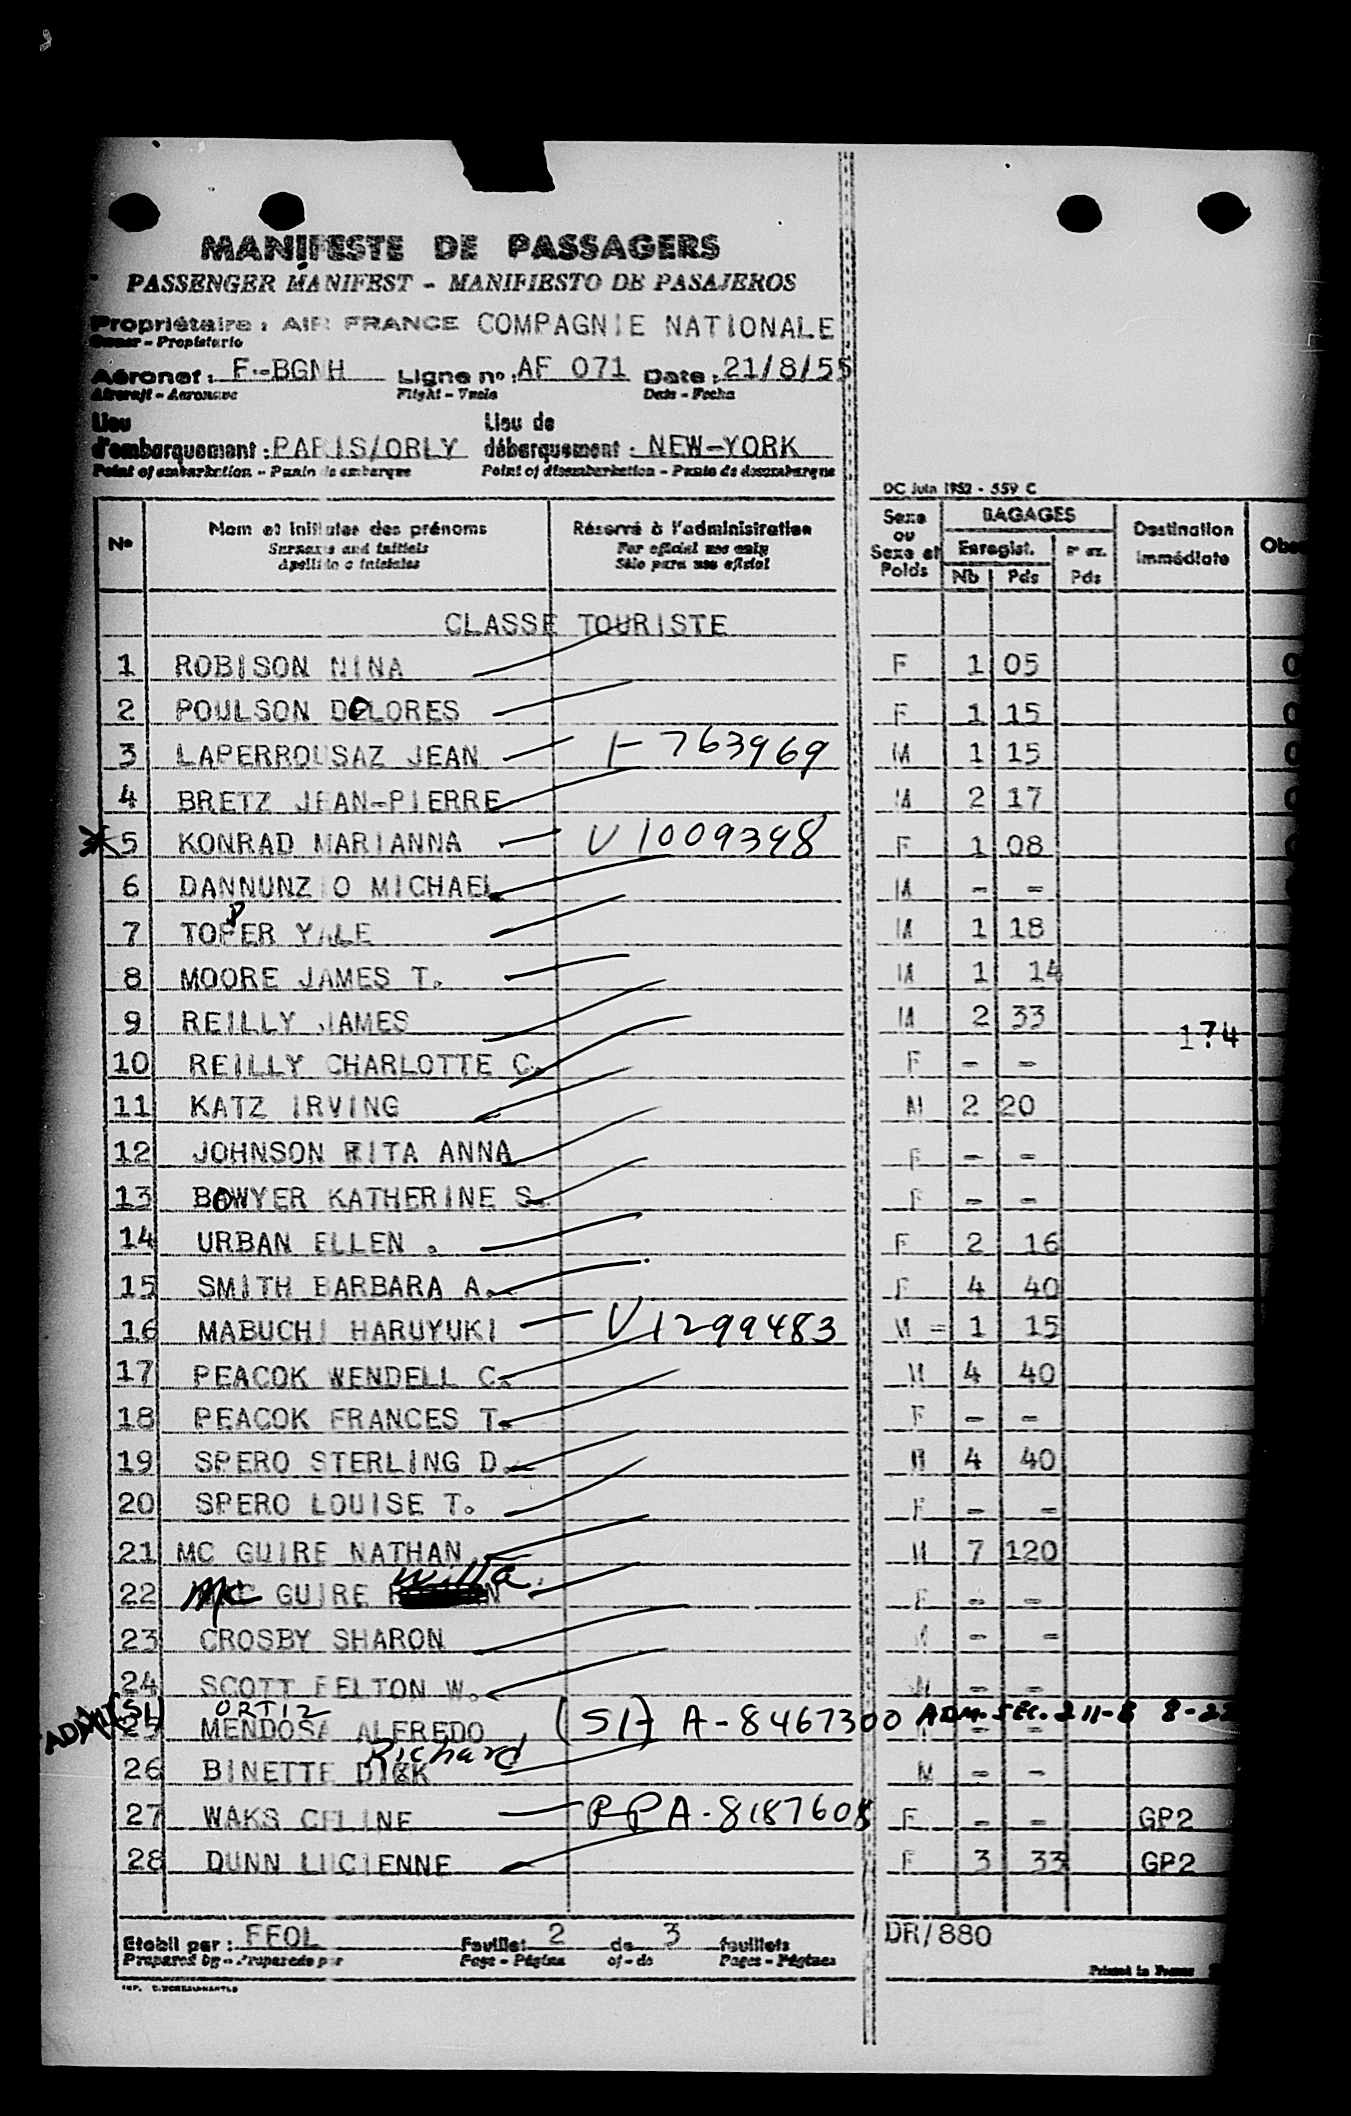 MANIFESTE DE PASSAGERS
PASSENGER MANIFEST - MANIFIESTO DE PASAJEROS
Propriétaire : AIR FRANCE COMPAGNIE NATIONALE
Owner - Propietario
Aéronef : F-BGNH Ligne nº : AF 071 Date : 21/8/55
Aircraft - Aeronave Flight - Vuelo Date - Fecha
Lieu d'embarquement : PARIS/ORLY Lieu de débarquement : NEW-YORK
Point of embarkation - Punto de embarque Point of disembarkation - Punto de desembarque
OC Juin 1952 - 559 C
Nº Nom et initiales des prénoms Réservé à l'administration Sexe ou Sexe et Poids BAGAGES Destination immédiate
Surnames and initials For official use only Enregist. Nb Pds Pds
Apellido e iniciales Sólo para uso oficial
CLASSE TOURISTE
1 ROBISON NINA F 1 05
2 POULSON DOLORES F 1 15
3 LAPERROUSAZ JEAN I-763969 M 1 15
4 BRETZ JEAN-PIERRE M 2 17
5 KONRAD MARIANNA V1009398 F 1 08
6 DANNUNZIO MICHAEL M - -
7 TOPER YALE M 1 18
8 MOORE JAMES T. M 1 14
9 REILLY JAMES M 2 33
174
10 REILLY CHARLOTTE C. F - -
11 KATZ IRVING M 2 20
12 JOHNSON RITA ANNA F - -
13 BOWYER KATHERINE S. F - -
14 URBAN ELLEN . F 2 16
15 SMITH BARBARA A. F 4 40
16 MABUCHI HARUYUKI V1299483 M = 1 15
17 PEACOK WENDELL C. M 4 40
18 PEACOK FRANCES T. F - -
19 SPERO STERLING D. M 4 40
20 SPERO LOUISE T. F - -
21 MC GUIRE NATHAN M 7 120
22 Mc GUIRE Willa F - -
23 CROSBY SHARON M - -
24 SCOTT FELTON W. M - -
(SI) ORTIZ
25 MENDOSA ALFREDO (SI) A-8467300 ADM. SEC. 211-B 8-22 - -
Richard
26 BINETTE DICK M - -
27 WAKS CELINE RP A-8187608 F - - GP2
28 DUNN LUCIENNE F 3 33 GP2
Etabli par : FEOL Feuillet 2 de 3 feuillets DR/880
Prepared by - Preparado por Page - Página of - de Pages - Páginas
Printed in France